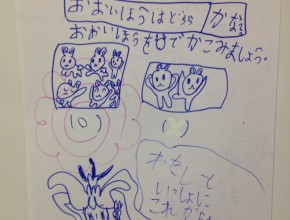 おおいほうはどっち かな?
おおいほうを○でかこみましょう。
(○) ( )
わたしも
いっしょに
これから